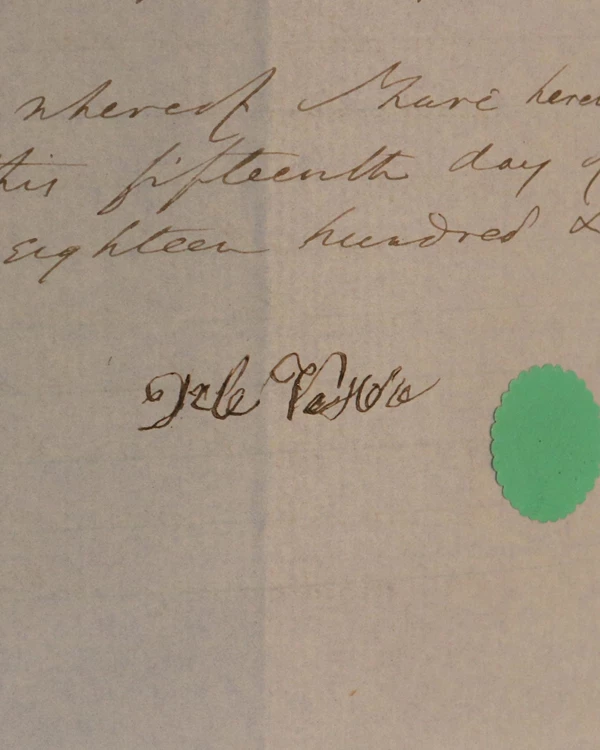 whereof I have
this fifteenth day
Eighteen hundred &